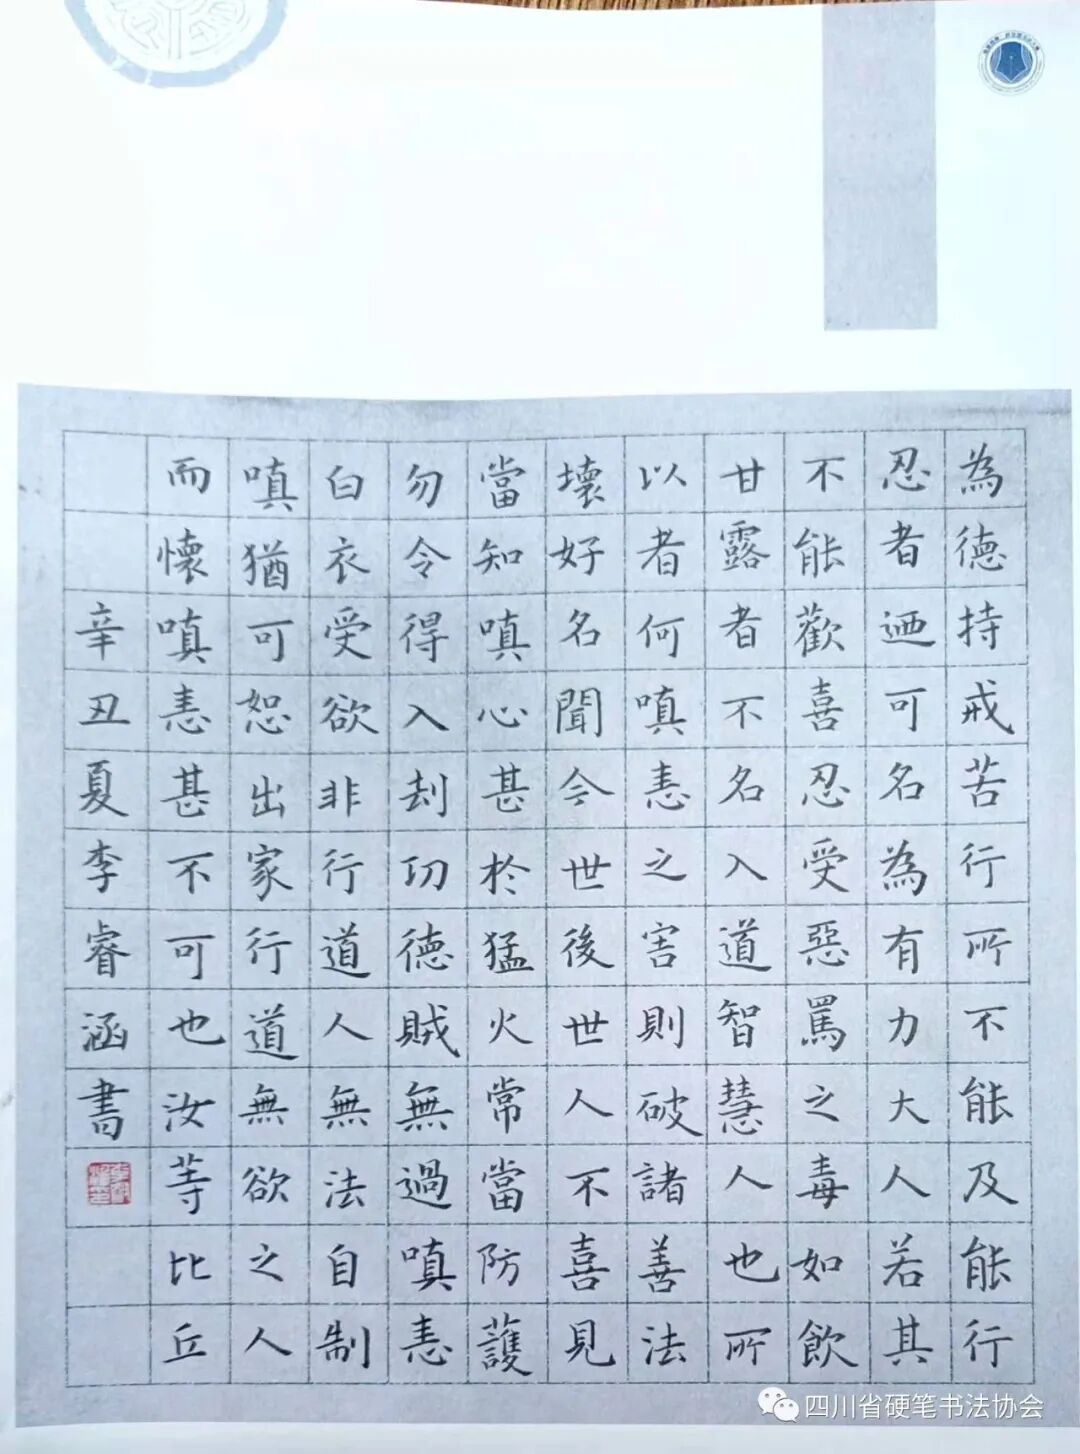 為德持戒苦行所不能及能行
忍者迺可名為有力大人若其
不能歡喜忍受惡罵之毒如飲
甘露者不名入道智慧人也所
以者何嗔恚之害則破諸善法
壞好名聞今世後世人不喜見
當知嗔心甚於猛火常當防護
勿令得入刦功德賊無過嗔恚
白衣受欲非行道人無法自制
嗔猶可恕出家行道無欲之人
而懷嗔恚甚不可也汝等比丘
辛丑夏李睿涵書
四川省硬笔书法协会